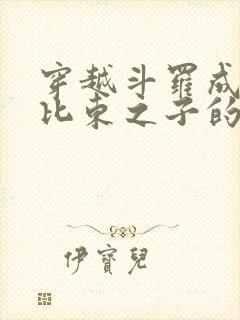 穿越斗羅成
比東之子的
伊寶兒